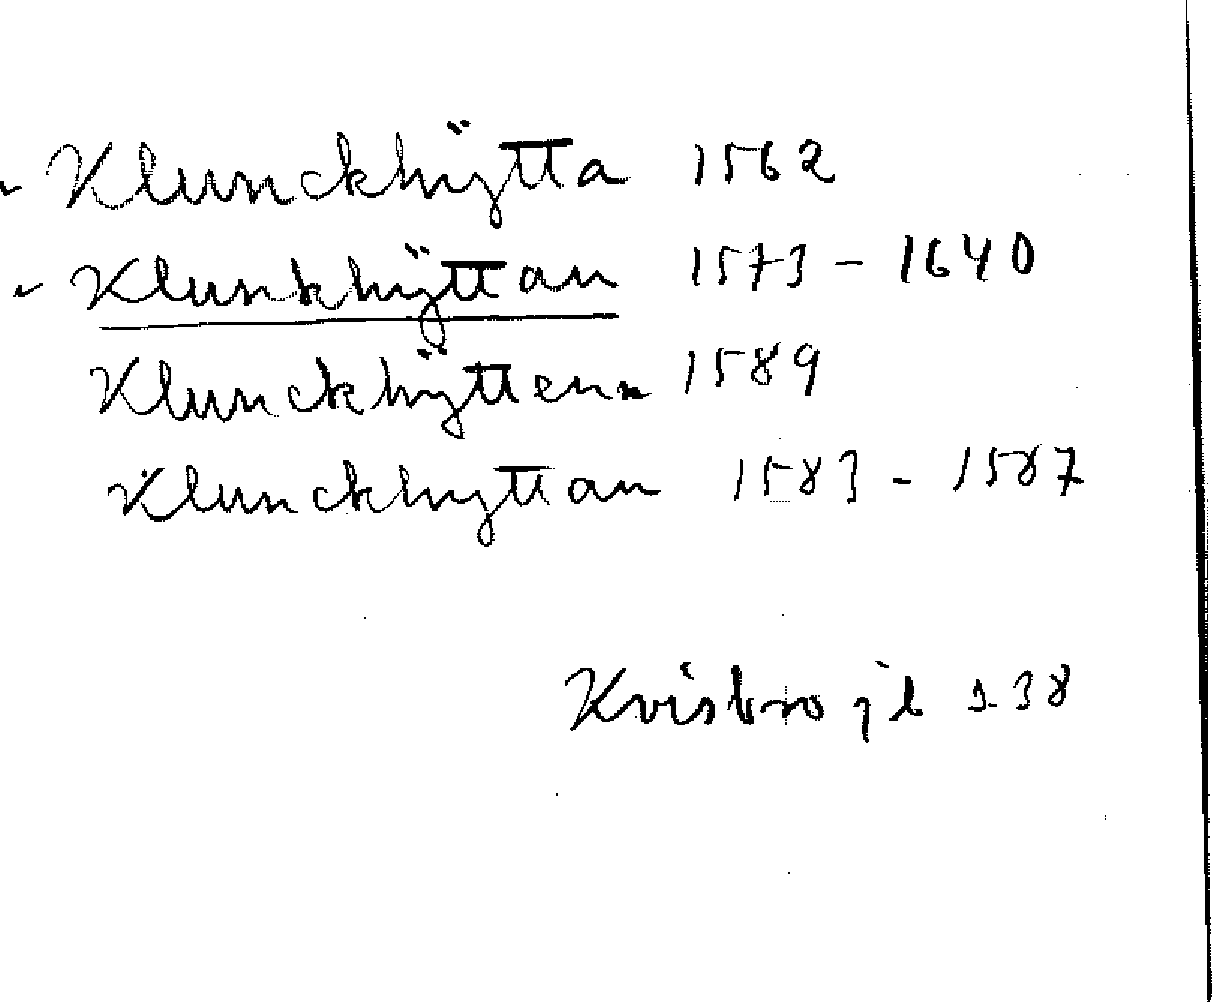 Klunckhÿtta 1562
Klunkhÿttan 1573 - 1640
Klunckhÿttenn 1589
Klunckhyttan 1583 - 1587
Kvisbro jb 138